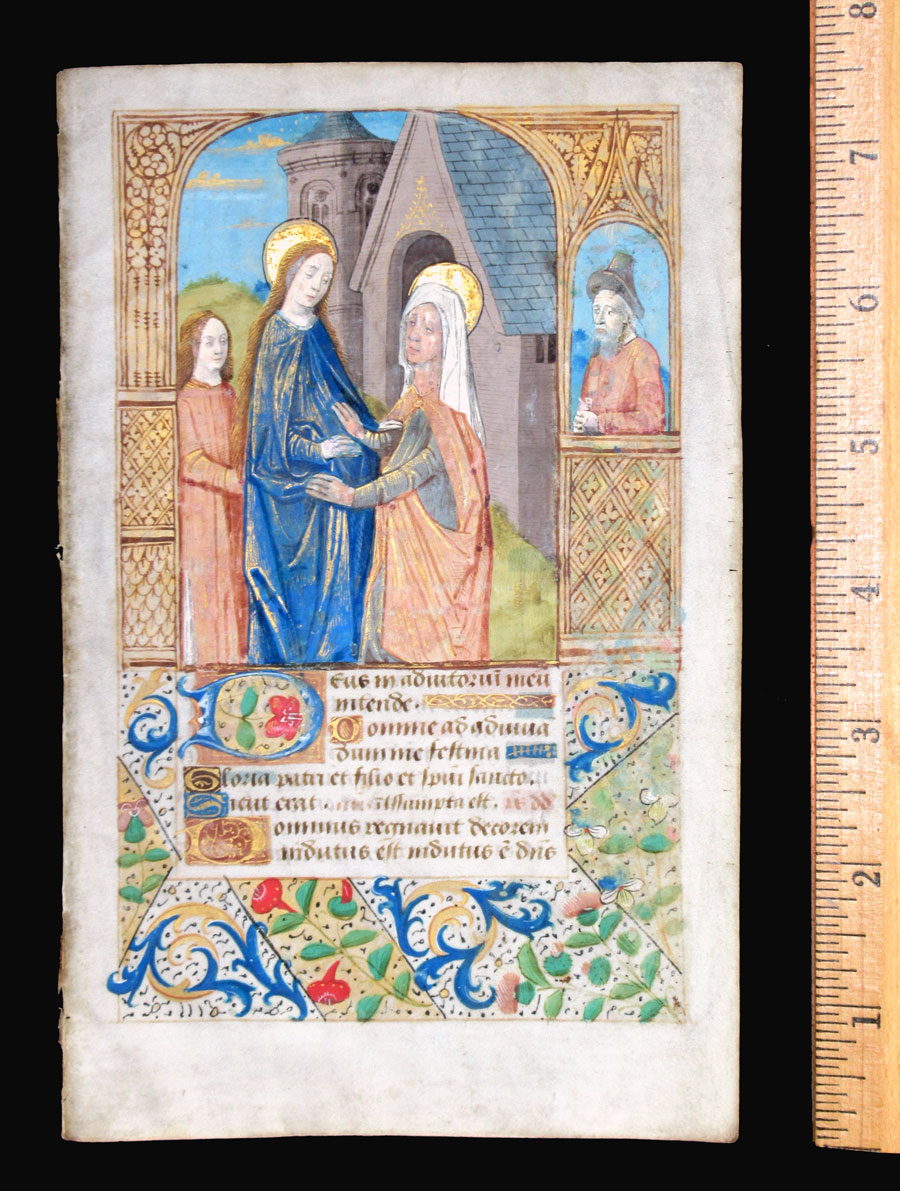 Eus in adiutoriū meū
intende.
Domine ad adiuua
dum me festina
Gloria patri et filio et spiri sancto.
Sicut erat. assumpta est. ps dd
Dominus regnauit decorem
indutus est indutus ē dn̄s
8
7
6
5
4
3
2
1